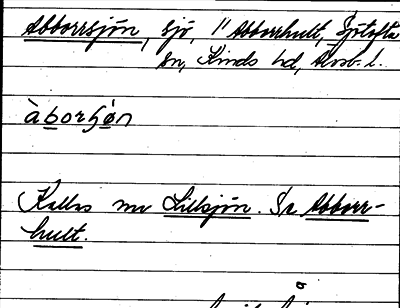 Abborrsjön, sjö, 11 Abborrhult, Sjötofta
sn, Kinds hd, Älvsb. l.
àborʃön
Kallas nu Lillsjön. Se Abborr-
hult.